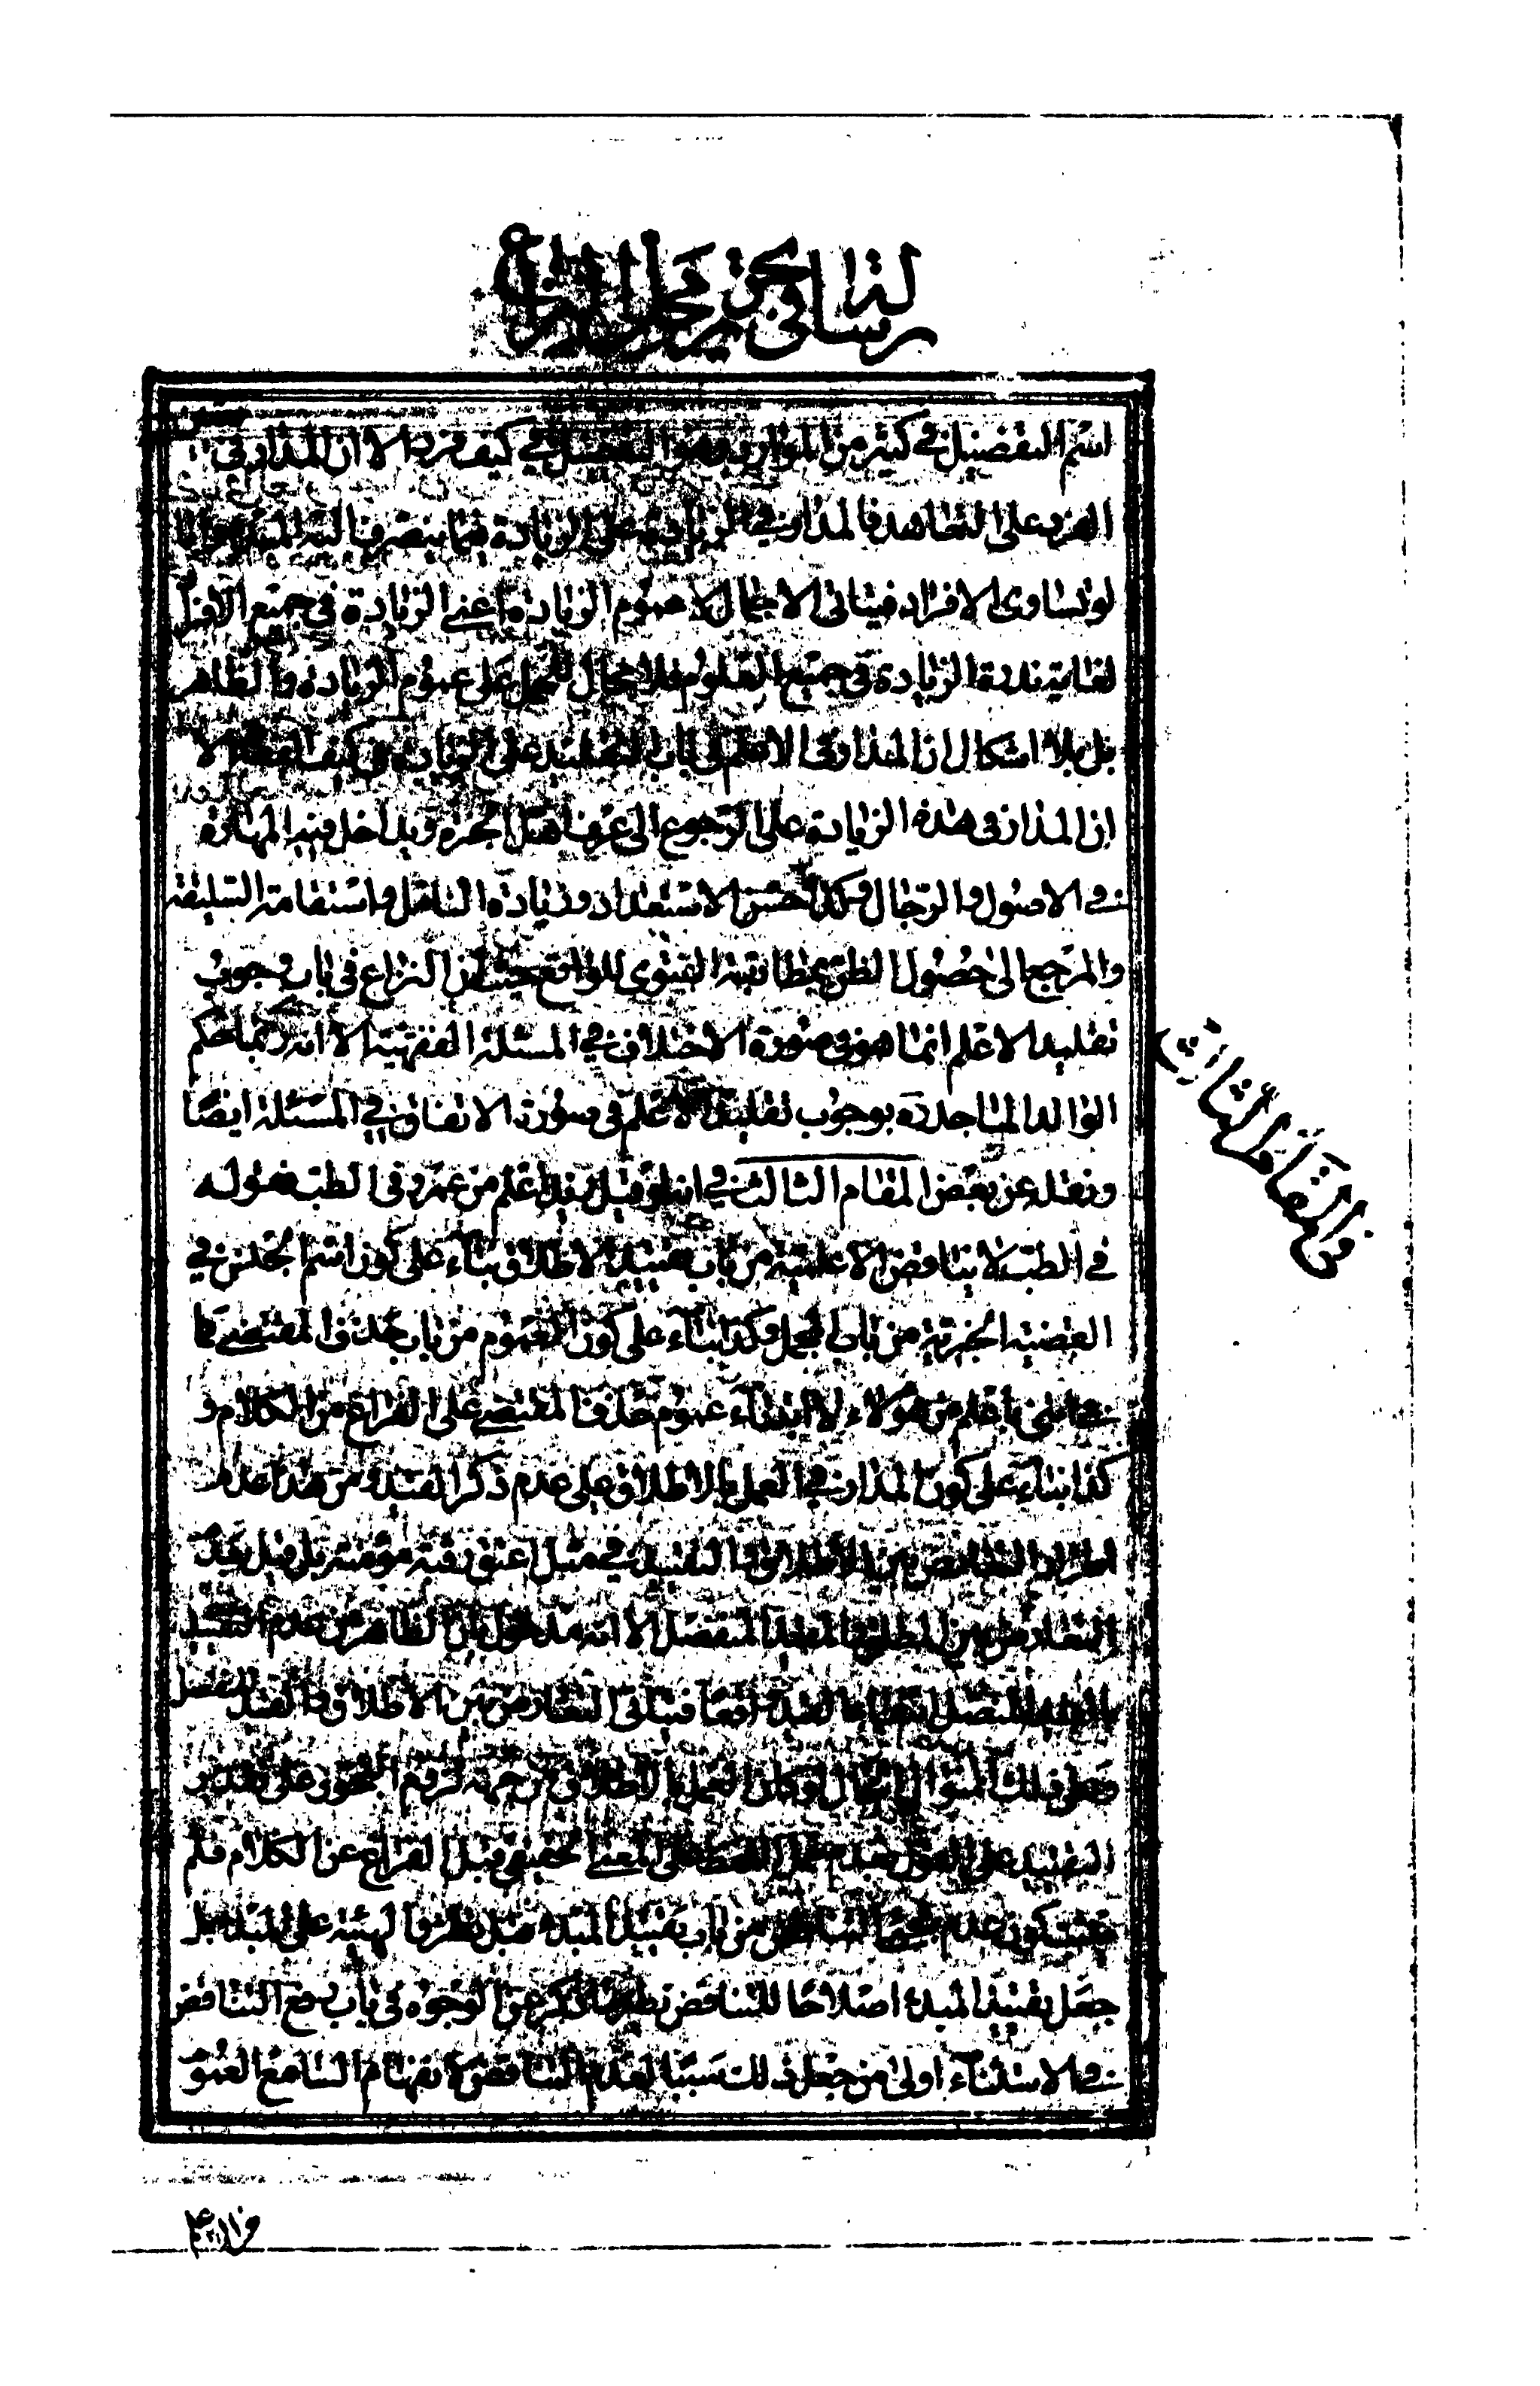 رسالة في تحرير محل النزاع
اسم التفضيل في كثير من الموارد وهو التفضيل في كيف فرد الا ان المدار في
الفرد على التعاهد فالمدار في الزيادة على الزيادة فيما ينصرف اليه
لو تساوى الافراد فيتاتى الاجمال لا عموم الزيادة اعني الزيادة في جميع الافراد
لغاية ندرة الزيادة في جميع العلوم فلا مجال للحمل على عموم الزيادة والظاهر
بل بلا اشكال ان المدار في الاعلم في باب التقليد على الزيادة في كيف الفقه الا
ان المدار في هذه الزيادة على الرجوع الى عرف اهل الخبرة ويداخل فيه المهارة
في الاصول والرجال وكذا حسن الاستعداد وزيادة التامل واستقامة السليقة
والمرجع الى حصول الظن بمطابقة الفتوى للواقع حيث ان النزاع في باب وجوب
تقليد الاعلم انما هو في صورة الاختلاف في المسئلة الفقهية الا انه ربما حكم
الوالد الماجد ره بوجوب تقليد الاعلم في صورة الاتفاق في المسئلة ايضا
ونقله عن بعض المقام الثالث في انه لو قيل زيد اعلم من عمرو في الطب فقوله
في الطب لا يناقض الاعلمية من باب تقييد الاطلاق بناء على كون اسم الجنس في
القضية الخبرية من باب المجمل وكذا بناء على كون العموم من باب حذف المقتضي كما
في اعلم من هؤلاء لابتناء عموم حذف المقتضي على الفراغ من الكلام و
كذا بناء على كون المدار في العمل بالاطلاق على عدم ذكر القيد ومن هذا عدم
اطراد التناقض بين الاطلاق والتقييد في مثل اعتق رقبة مؤمنة بل قيل
التعارض بين المطلق والمقيد المنفصل الا انه مدخول بان الظاهر من عدم التقييد
بالقيد المتصل القيد واقعا فيتاتى التعارض بين الاطلاق والقيد المنفصل
المنوال الحال لو كان العمل بالاطلاق من جهة لزوم التجوز على تقدير
التقييد على القول بعدم حمل اللفظ على المعنى الحقيقي قبل الفراغ عن الكلام فلم
يثبت كون عدم التناقض من باب تقييد المبدء قبل الهيئة على المبدء بل
جعل تقييد المبدء اصلاحا للتناقض نظير ما ذكر من الوجوه في باب رفع التناقض
في الاستثناء اولى من جعل ذلك سببا لعدم التناقض لانفهام السامع العموم
في المقام الثالث